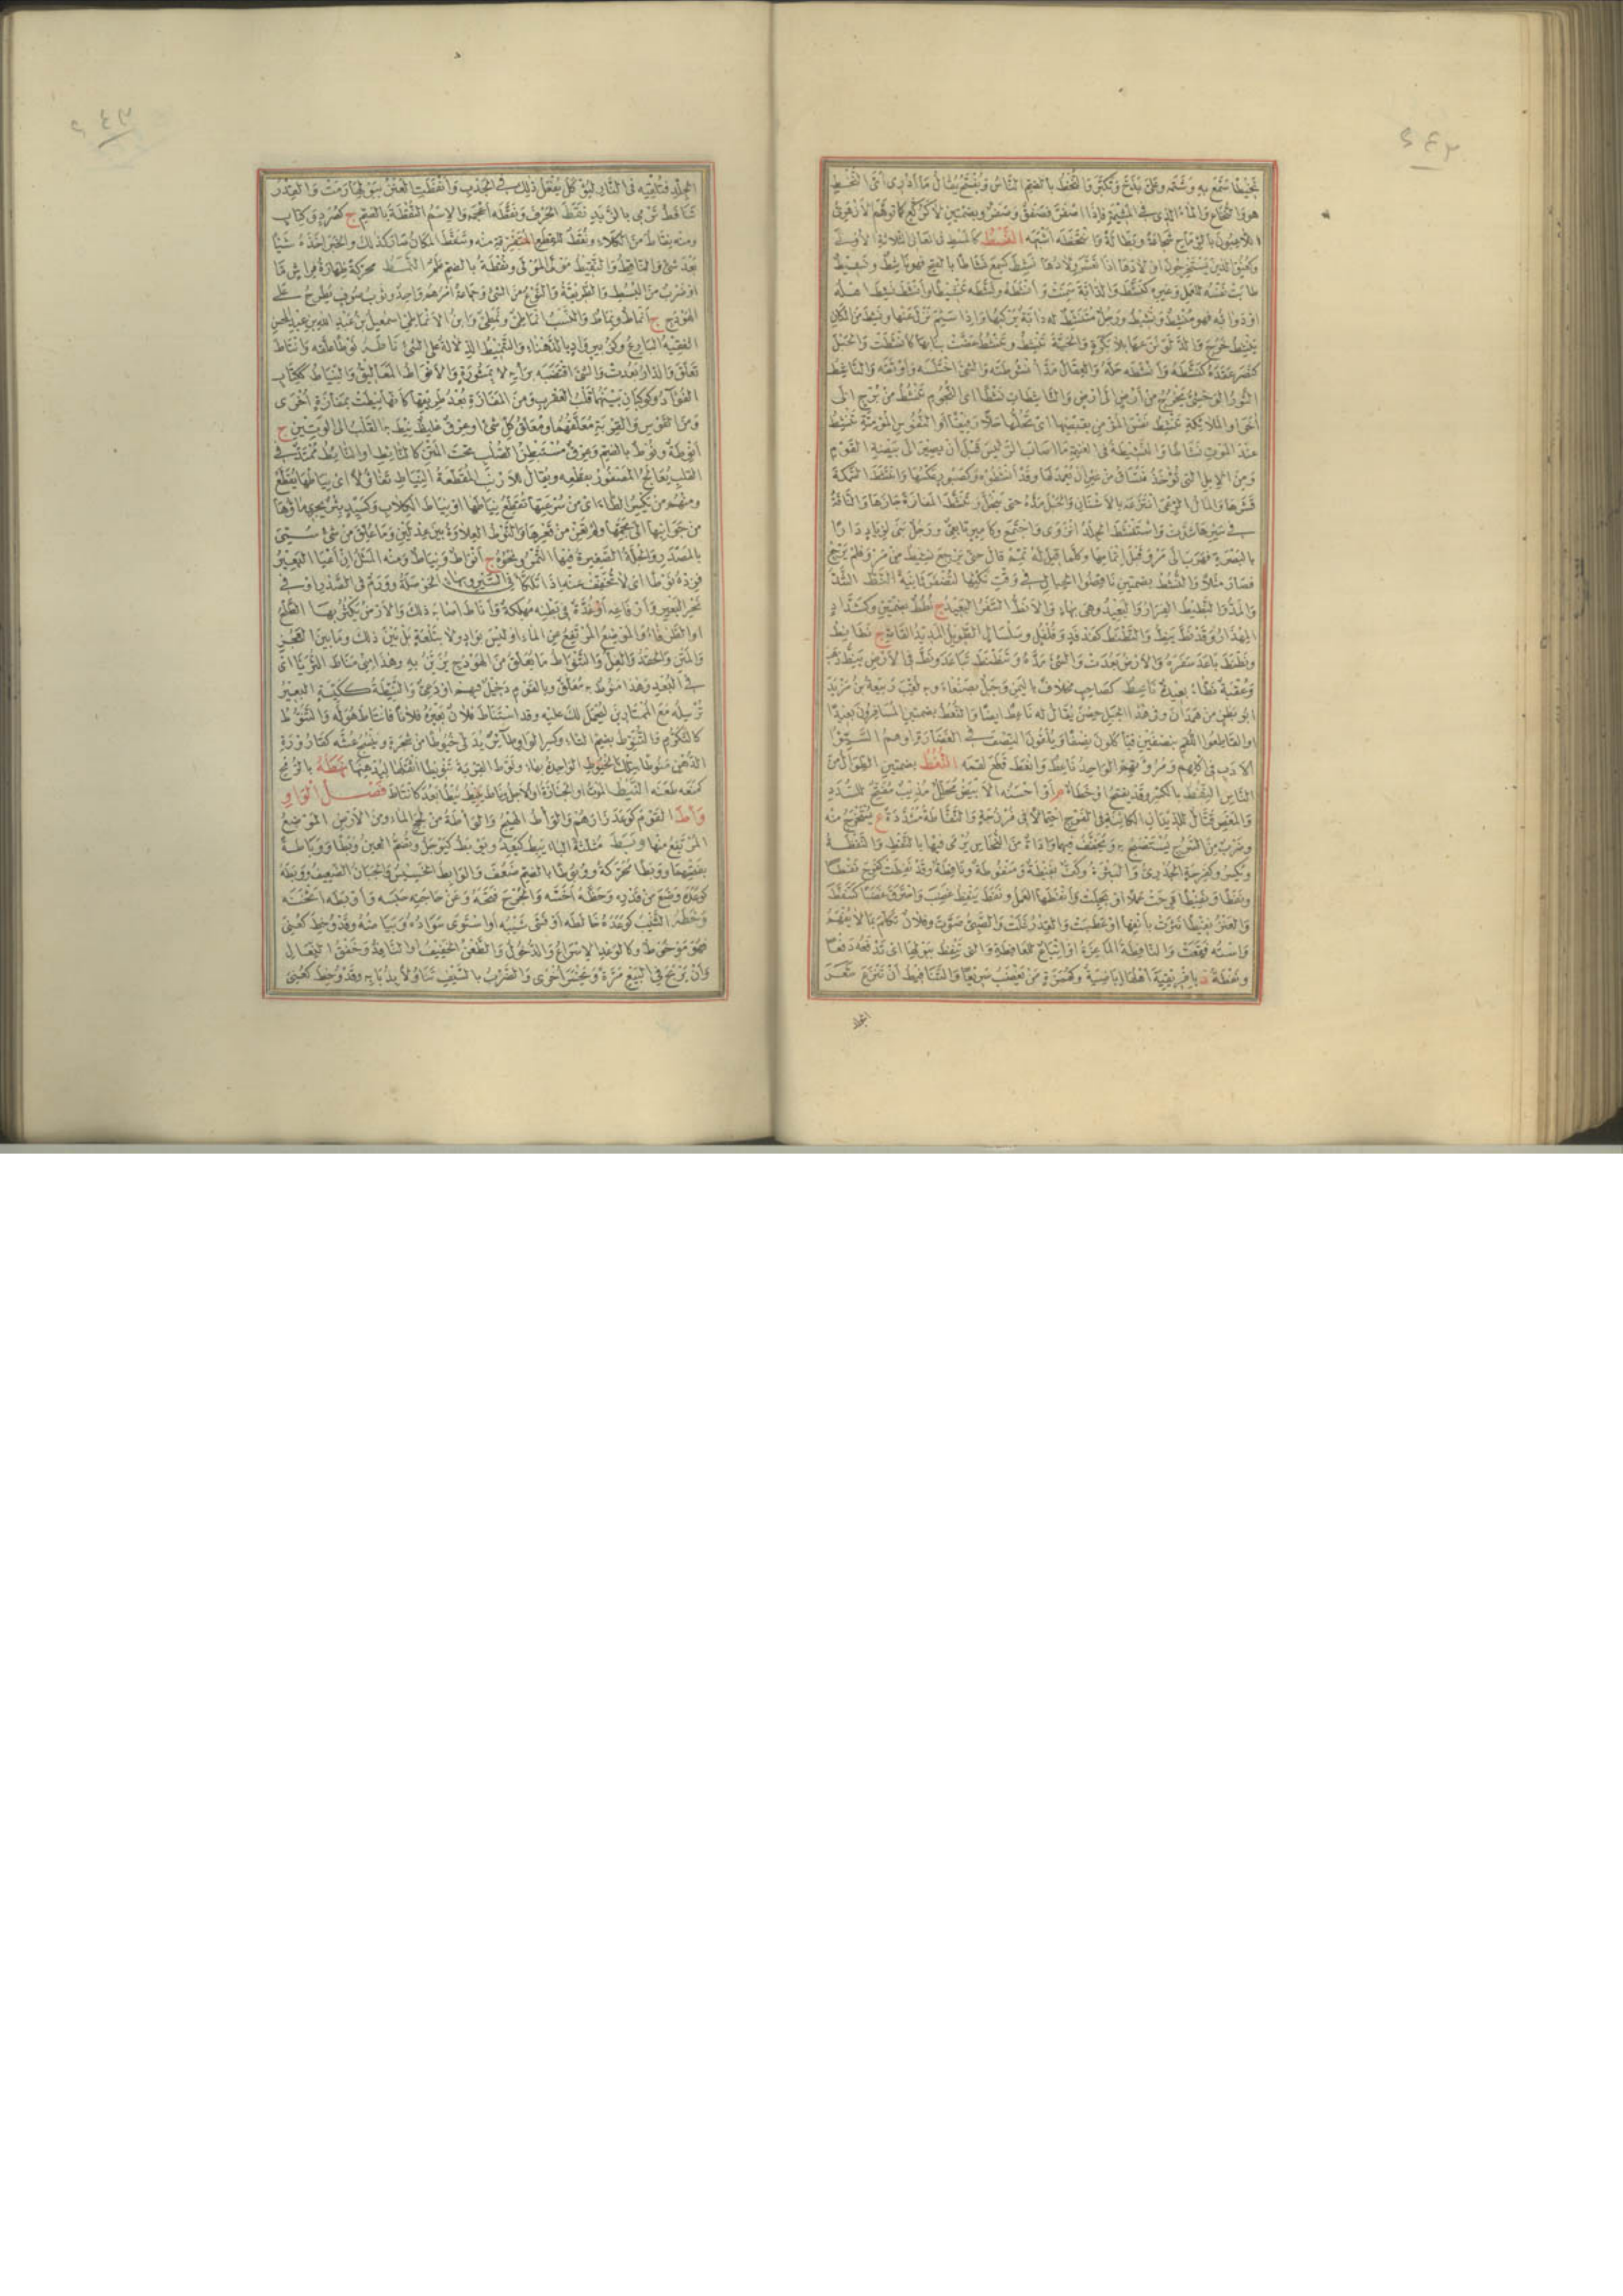 ٢٤٣
تنخيطا سمع به وشتمه وعلى بذخ وتكبر والنخط بالضم الناس ويفتح يقال ما أدرى أى النخط
هو والنخاع والماء الذى فى المشيمة فإذا اصفر فصفق وصفر وبضمتين لا كركع كما توهم الأزهرى
اللاعبون بالرماح شجاعة وبطالة وانتخطه أشبهه النسط كالمسط فى المعانى الثلاثة الأول
وكعنق الذين يستخرجون أولادها إذا تعسر ولادها نشط كسمع نشاطا بالفتح فهو ناشط ونشيط
طابت نفسه للعمل وغيره كتنشط والدابة سمنت وأنشطه ونشطه تنشيطا وأنشط نشط أهله
أو دوابه فهو منشط ونشيط ورجل متنشط له دابة يركبها وإذا سئم نزل عنها ونشط من المكان
ينشط خرج والدلو نزعها بلا بكرة والحية تنشط وتنشط عضت بنابها كأنشطت والحبل
كنصر عقده كنشطه وأنشطه حله والعقال مد أنشوطته والشئ اختلسه وأوثقه والناشط
الثور الوحشى يخرج من أرض إلى أرض والناشطات نشطا أى النجوم تنشط من برج إلى
آخر أو الملائكة تنشط نفس المؤمن بقبضها أى تحلها حلا رفيقا أو النفوس المؤمنة تنشط
عند الموت نشاطا والنشيطة فى الغنيمة ما أصاب الرئيس قبل أن يصير إلى بيضة القوم
ومن الإبل التى تؤخذ فتساق من غير أن يعمد لها وقد أنشطوه وكصبور سمك وانتشط السمكة
قشرها والمال الرعى انتزعه بالأسنان والحبل مده حتى ينحل وتنشط المفازة جازها والناقة
فى سيرها شدت واستنشط الجلد انزوى واجتمع وكأمير تابعى ورجل بنى لزياد دارا
بالبصرة فهرب إلى مرو قبل إتمامها وكلما قيل له تمم قال حتى يرجع نشيط من مرو فلم يرجع
فصار مثلا والنشط بضمتين ناقضو الحبال فى وقت نكثها لتضفر ثانية النط الشد
والمد والنطيط الفرار والبعيد وهى بهاء والأنط السفر البعيد ج نطط بضمتين وكشداد
المهذار وقد نط ينط والنطنط كفدفد وفلفل وسلسال الطويل المديد القامة ج نطانط
ونطنط باعد سفره والأرض بعدت والشئ مده وتنطنط تباعد ونط فى الأرض ينط ذهب
وعقبة نطاء بعيدة ناعط كصاحب مخلاف باليمن وجبل بصنعاء وبه لقب ربيعة بن مرثد
أبو بطن من همدان وفى هذا الجبل حصن يقال له ناعط أيضا والنعط بضمتين المسافرون بعيدا
أو القاطعو اللقم بنصفين فيأكلون نصفا ويلقون النصف فى الغضارة وهم السيئو
الأدب فى أكلهم ومروءتهم الواحد ناعط وأنعط قطع لقمه النغط بضمتين الطوال من
الناس النفط بالكسر وقد يفتح أو خطأ م أو أحسنه الأبيض محلل مذيب مفتح للسدد
والمغص قتال للديدان الكائنة فى الفرج احتمالا فى فرزجة والنفاطة مشددة ع يستخرج منه
وضرب من السرج يستصبح به وتخفف فيهما وأداة من النحاس يرمى فيها بالنفط والنفطة
وتكسر وكفرحة الجدرى والبثرة وكف نفيطة ومنفوطة ونافطة وقد نفطت كفرح نفطا
ونفطا ونفيطا قرحت عملا أو مجلت وأنفطها العمل ونفط ينفط غضب واحترق غضبا كتنفط
والعنز نفيطا نثرت بأنفها أو عطست والقدر غلت والصبى صوت وفلان تكلم بما لا يفهم
واسته فقعت والنافطة الماعزة أو إتباع للعافطة والتى تنفط ببولها أى تدفعه دفعا
ونفطة د بإفريقية أهلها إباضية وكهمزة من يغضب سريعا والتنافيط أن تنزع شعر
الجلد
٢٤٣
الجلد فتلقيه فى النار ليؤكل يفعل ذلك فى الجدب وأنفطت العنز ببولها رمت والقدر
تنافط ترمى بالزبد نقط الحرف ونقطه أعجمه والاسم النقطة بالضم ج كصرد وكتاب
ومنه نقاط من الكلاء ونقط للقطع المتفرقة منه وتنقط المكان صار كذلك والخبر أخذه شيئا
بعد شئ والناقط والنقيط مولى المولى ونقطة بالضم علم النمط محركة ظهارة فراش ما
أو ضرب من البسط والطريقة والنوع من الشئ وجماعة أمرهم واحد وثوب صوف يطرح على
الهودج ج أنماط ونماط والنسب أنماطى ونمطى وابن الأنماطى إسمعيل بن عبد الله بن عبد المحسن
الفقيه البارع وكزبير واد بالدهناء والتنميط الدلالة على الشئ ناطه نوطا علقه وانتاط
تعلق والدار بعدت والشئ اقتضبه برأيه لا بمشورة والأنواط المعاليق والنياط ككتاب
الفؤاد وكوكبان بينهما قلب العقرب ومن المفازة بعد طريقها كأنها نيطت بمفازة أخرى
ومن القوس والقربة معلقهما ومعلق كل شئ وعرق غليظ نيط به القلب إلى الوتين ج
أنوطة ونوط بالضم وعرق مستبطن الصلب تحت المتن كالنائط أو النائط ممتد فى
القلب يعالج المصفور بقطعه ويقال للأرنب المقطعة النياط تفاؤلا أى نياطها يقطع
ومنهم من يكسر الطاء أى من سرعتها تقطع نياطها أو نياط الكلاب وكسيد بئر يجرى ماؤها
من جوانبها إلى مجمها ولم تعن من قعرها والنوط العلاوة بين عدلين وما علق من شئ سمى
بالمصدر والجلة الصغيرة فيها التمر ونحوه ج أنواط ونياط ومنه المثل إن أعيا البعير
فزده نوطا أى لا تخفف عنه إذا تلكأ فى السير وبهاء الحوصلة وورم فى الصدر أو فى
نحر البعير وأرفاغه أو غدة فى بطنه مهلكة وأناط أصابه ذلك والأرض يكثر بها الطلح
أو الطرفاء والموضع المرتفع عن الماء أو ليس بواد ولا بتلعة بل بين ذلك وما بين العجز
والمتن والحقد والغل والتنواط ما يعلق من الهودج يزين به وهذا منى مناط الثريا أى
فى البعد وهذا منوط به معلق وبالقوم دخيل فيهم أو دعى والنيطة ككيسة البعير
ترسله مع الممتارين ليحمل لك عليه وقد استناط فلان بعيره فلانا فانتاط هو له والتنوط
كالتكرم والتنوط بضم التاء وكسر الواو طائر يدلى خيوطا من شجرة وينسج عشه كقارورة
الدهن منوطا بتلك الخيوط الواحدة بهاء ونوط القربة تنويطا أثقلها ليدهنها نهطه بالرمح
كمنعه طعنه النيط الموت أو الجنازة أو الأجل وناط ينيط نيطا بعد كانتاط فصل الواو
وأط القوم كوعد زارهم والوأط الهيج والوأطة من لجج الماء ومن الأرض الموضع
المرتفع منها وبط مثلثة الباء يبط كيعد ويوبط كيوجل وتضم العين وبطا ووباطة
بفتحهما ووبطا محركة ووبوطا بالضم ضعف والوابط الخسيس والجبان الضعيف ووبطه
كوعده وضع من قدره وحظه أخسه والجرح فتحه وعن حاجته حبسه وأوبطه أثخنه
وخطه الشيب كوعده خالطه أو فشا شيبه أو استوى سواده وبياضه وقد وخط كعنى
فهو موخوط وكالوعد الإسراع والدخول والطعن الخفيف أو النافذ وخفق النعال
وأن يربح فى البيع مرة ويخسر أخرى والضرب بالسيف تناولا بذبابه وقد وخط كعنى